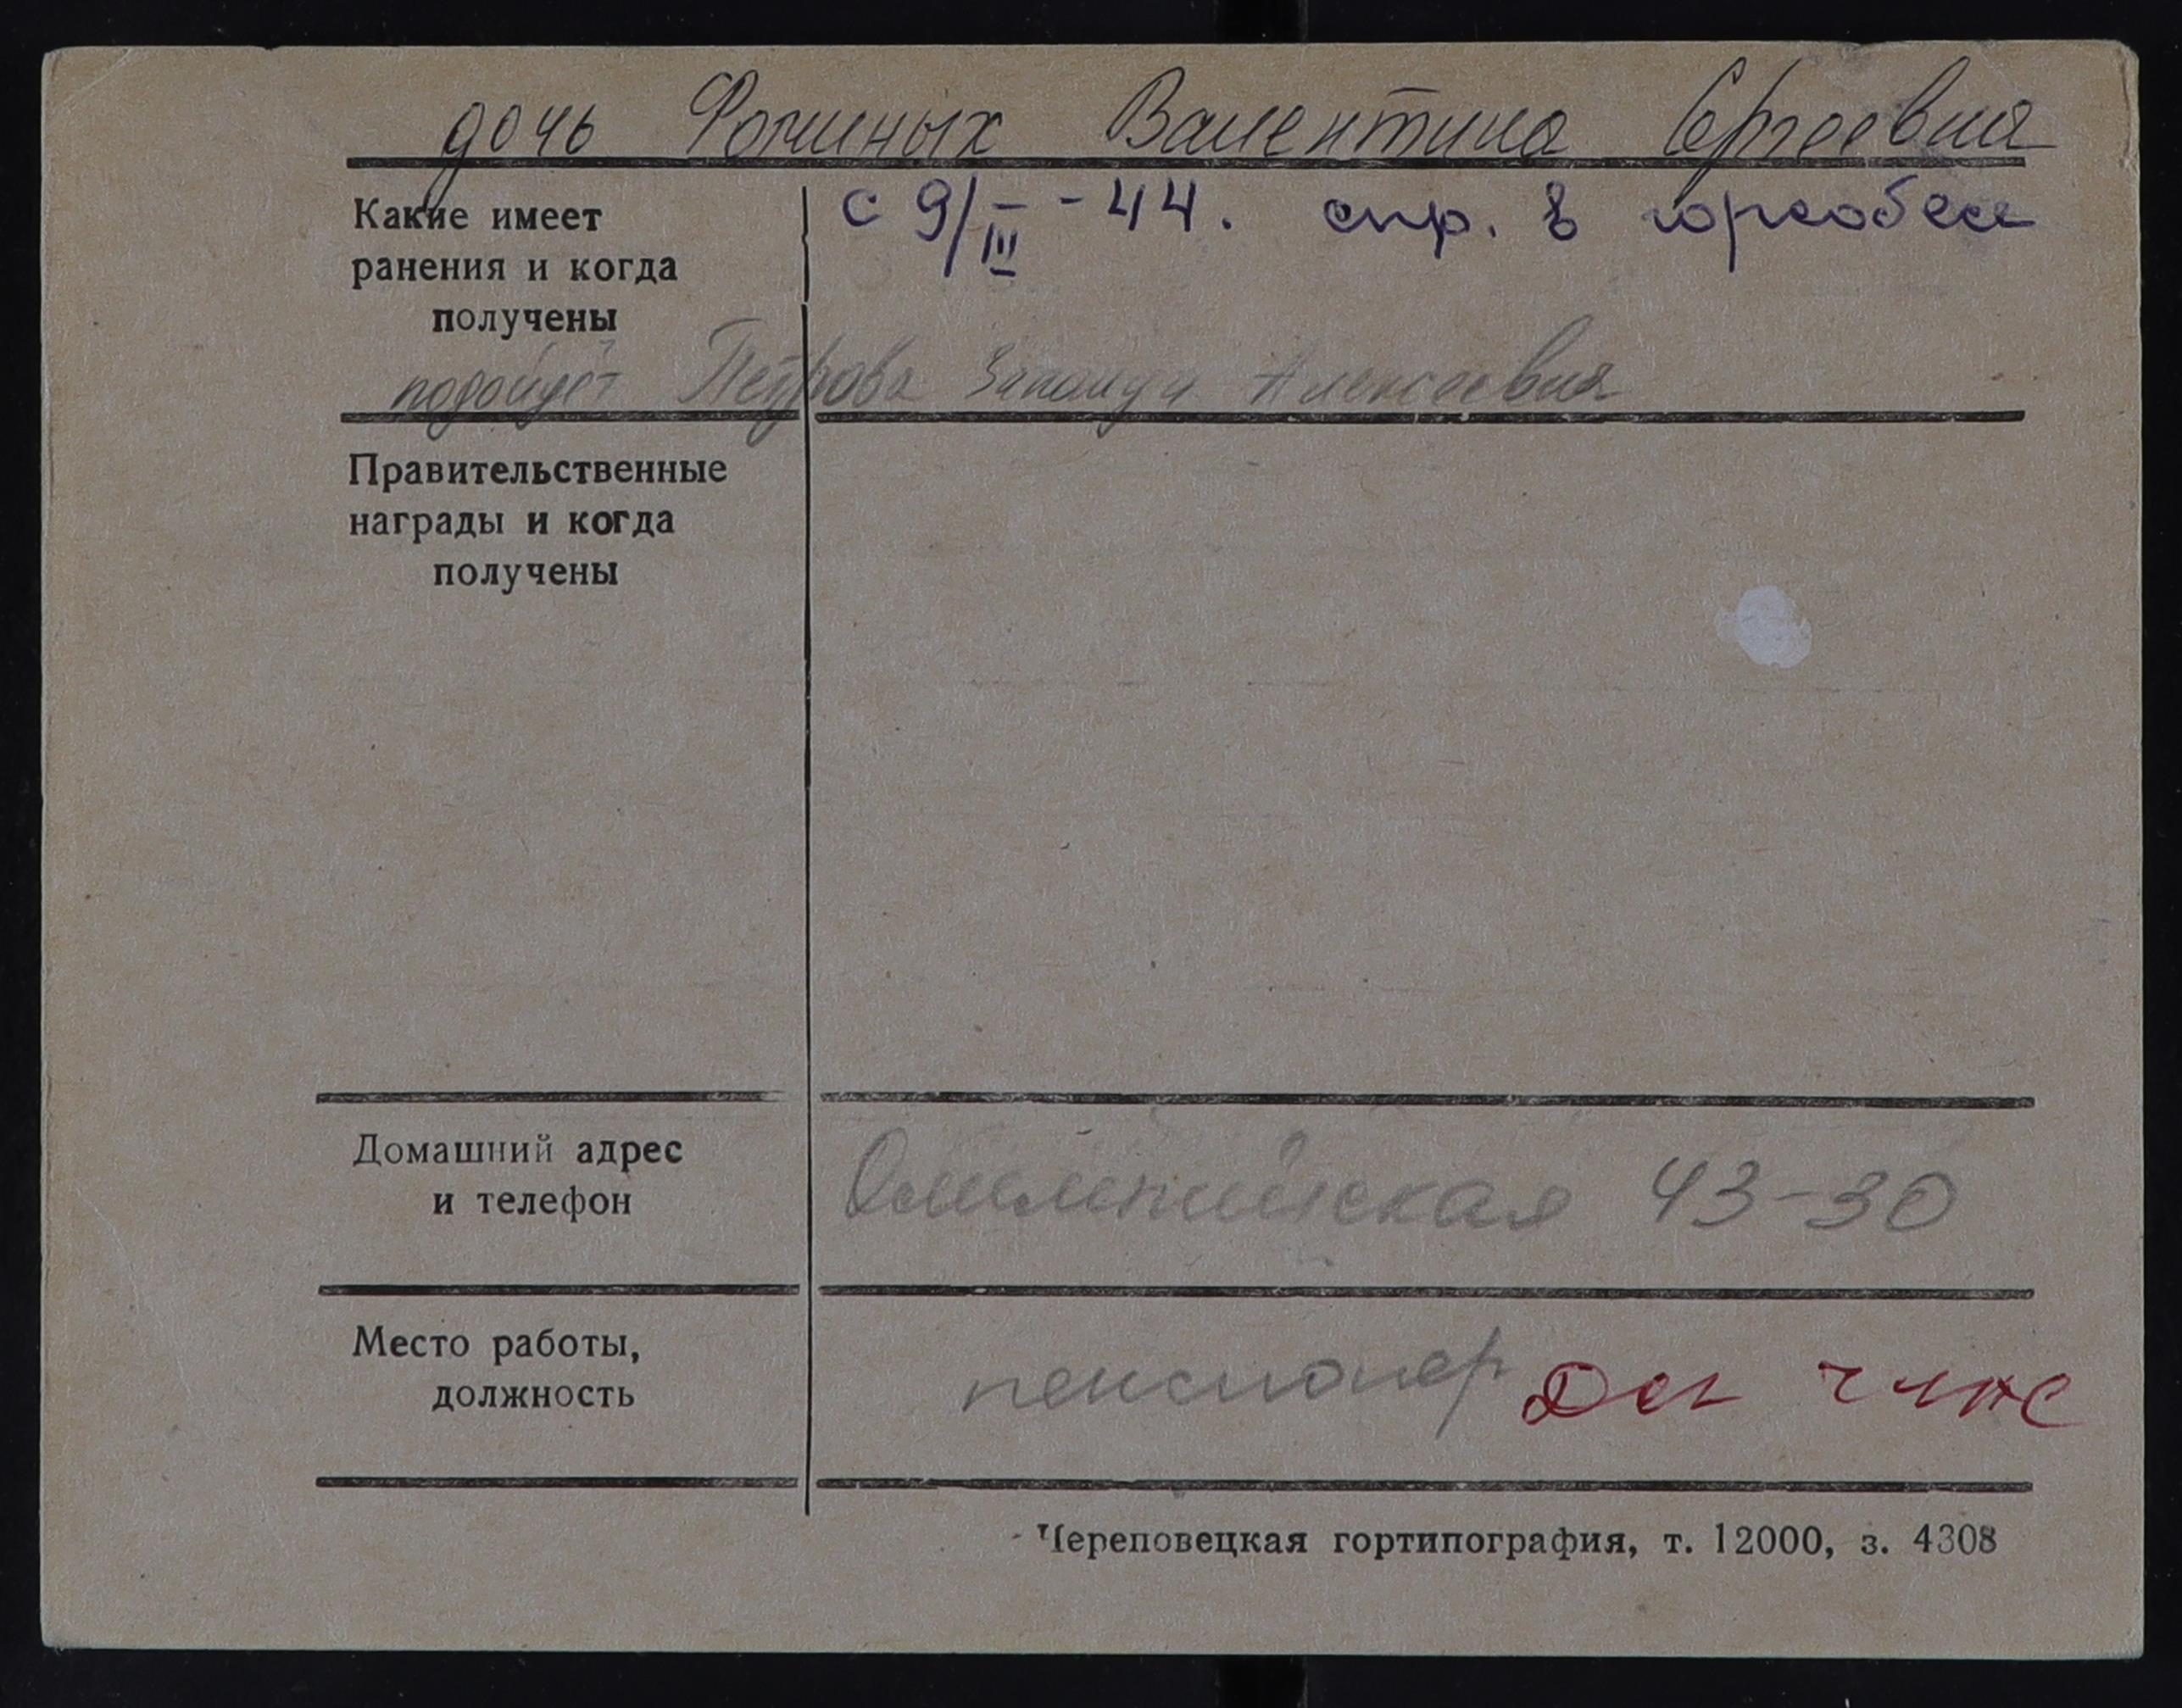 дочь Фокиных Валентина Сергеевна
Какие имеет
ранения и когда
получены
с 9/III - 44. спр. в горсобесе
подойдёт Петрова Алексеевна
Правительственные
награды и когда
получены
Домашний адрес
и телефон
Олимпийская 43-30
Место работы,
должность
пенсионер
Череповецкая гортипография, т. 12000, з. 4308